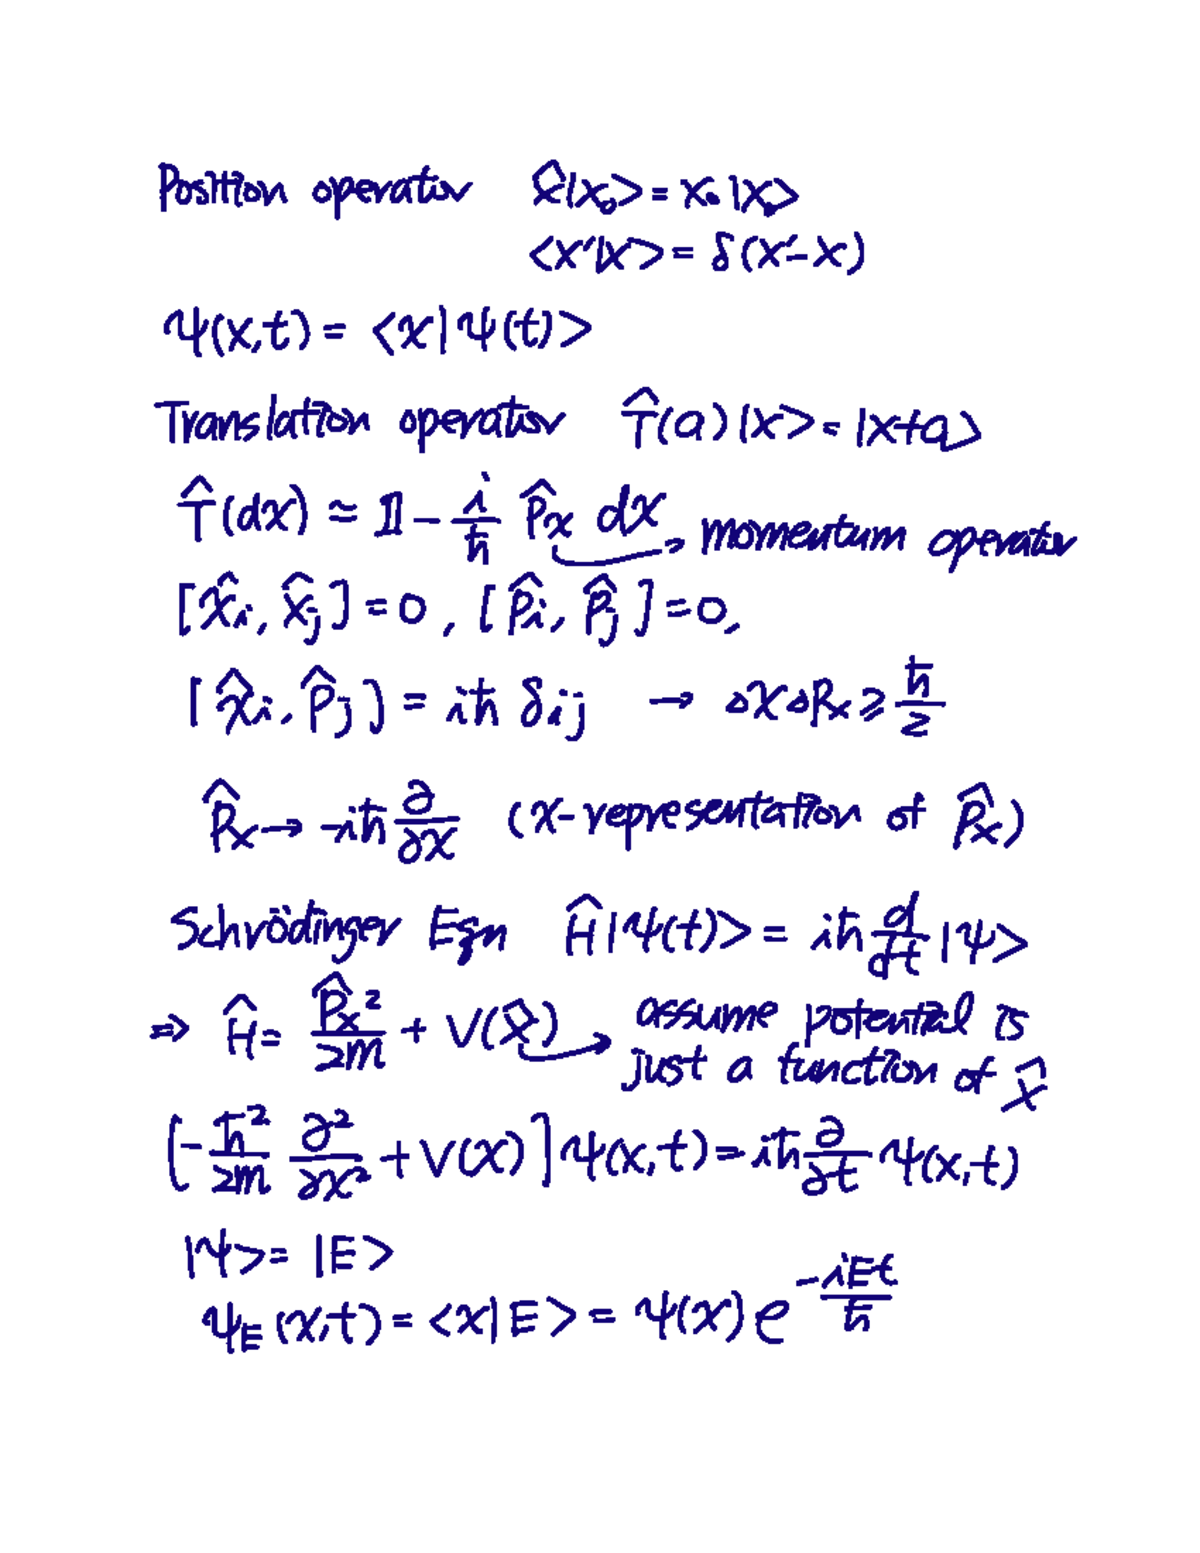 Position operator x̂|x₀> = x₀|x₀>
<x'|x> = δ(x'-x)
Ψ(x,t) = <x|Ψ(t)>
Translation operator T̂(a)|x> = |x+a>
T̂(dx) ≃ 𝟙 - i/ħ P̂x dx → momentum operator
[x̂i, x̂j] = 0, [P̂i, P̂j] = 0,
[x̂i, P̂j] = iħ δij → ΔxΔPx ≥ ħ/2
P̂x → -iħ ∂/∂x (x-representation of P̂x)
Schrödinger Eqn Ĥ|Ψ(t)> = iħ d/dt |Ψ>
⇒ Ĥ = P̂x²/2m + V(x̂) → assume potential is
just a function of x̂
[-ħ²/2m ∂²/∂x² + V(x)] Ψ(x,t) = iħ ∂/∂t Ψ(x,t)
|Ψ> = |E>
ΨE(x,t) = <x|E> = Ψ(x) e^(-iEt/ħ)